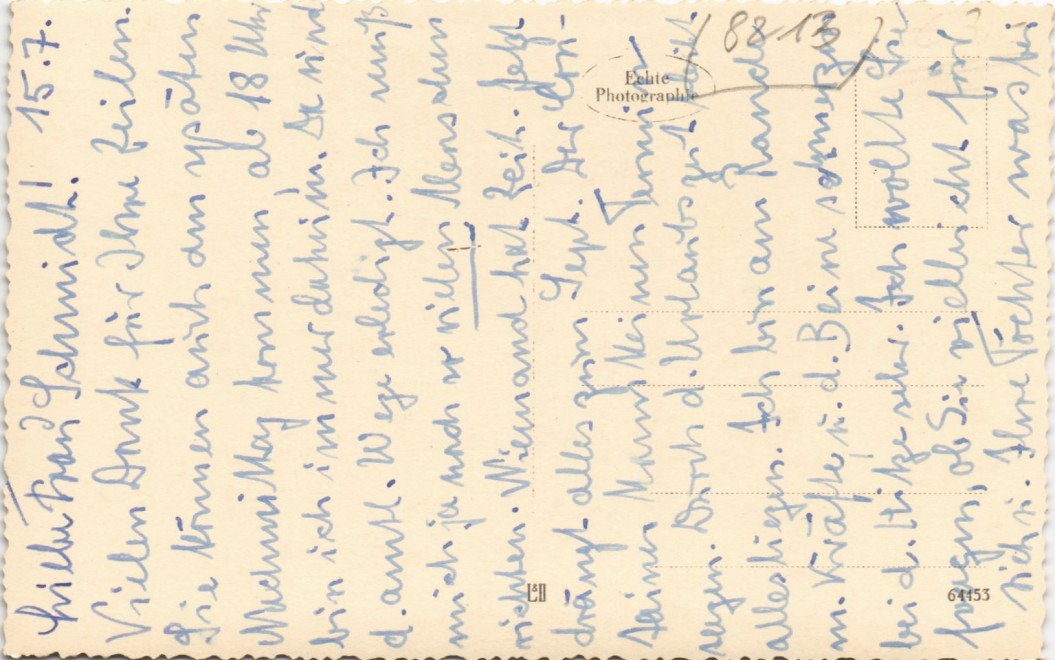 Liebe Frau Schmidt! 15.7.
Vielen Dank für Ihre Zeilen.
Sie können auch am späten
Nachmittag kommen ab 18 Uhr
bin ich immer daheim. Da sind
d. amtl. Wege erledigt. Ich muß
mich ja nach so vielen Menschen
richten. Niemand hat Zeit. Jetzt
drängt alles zum Sept. Der
keinen Termin
Durch d. Urlaubszeit bleibt
alles liegen. Ich bin am Rande
m. Kräfte u. d. Beine schmerzen
bei d. Hitze sehr. Ich wollte Sie
fragen, ob Sie vielleicht für
sich o. Ihre Tochter was bei
(8213)
Echte
Photographie
L&B
64453